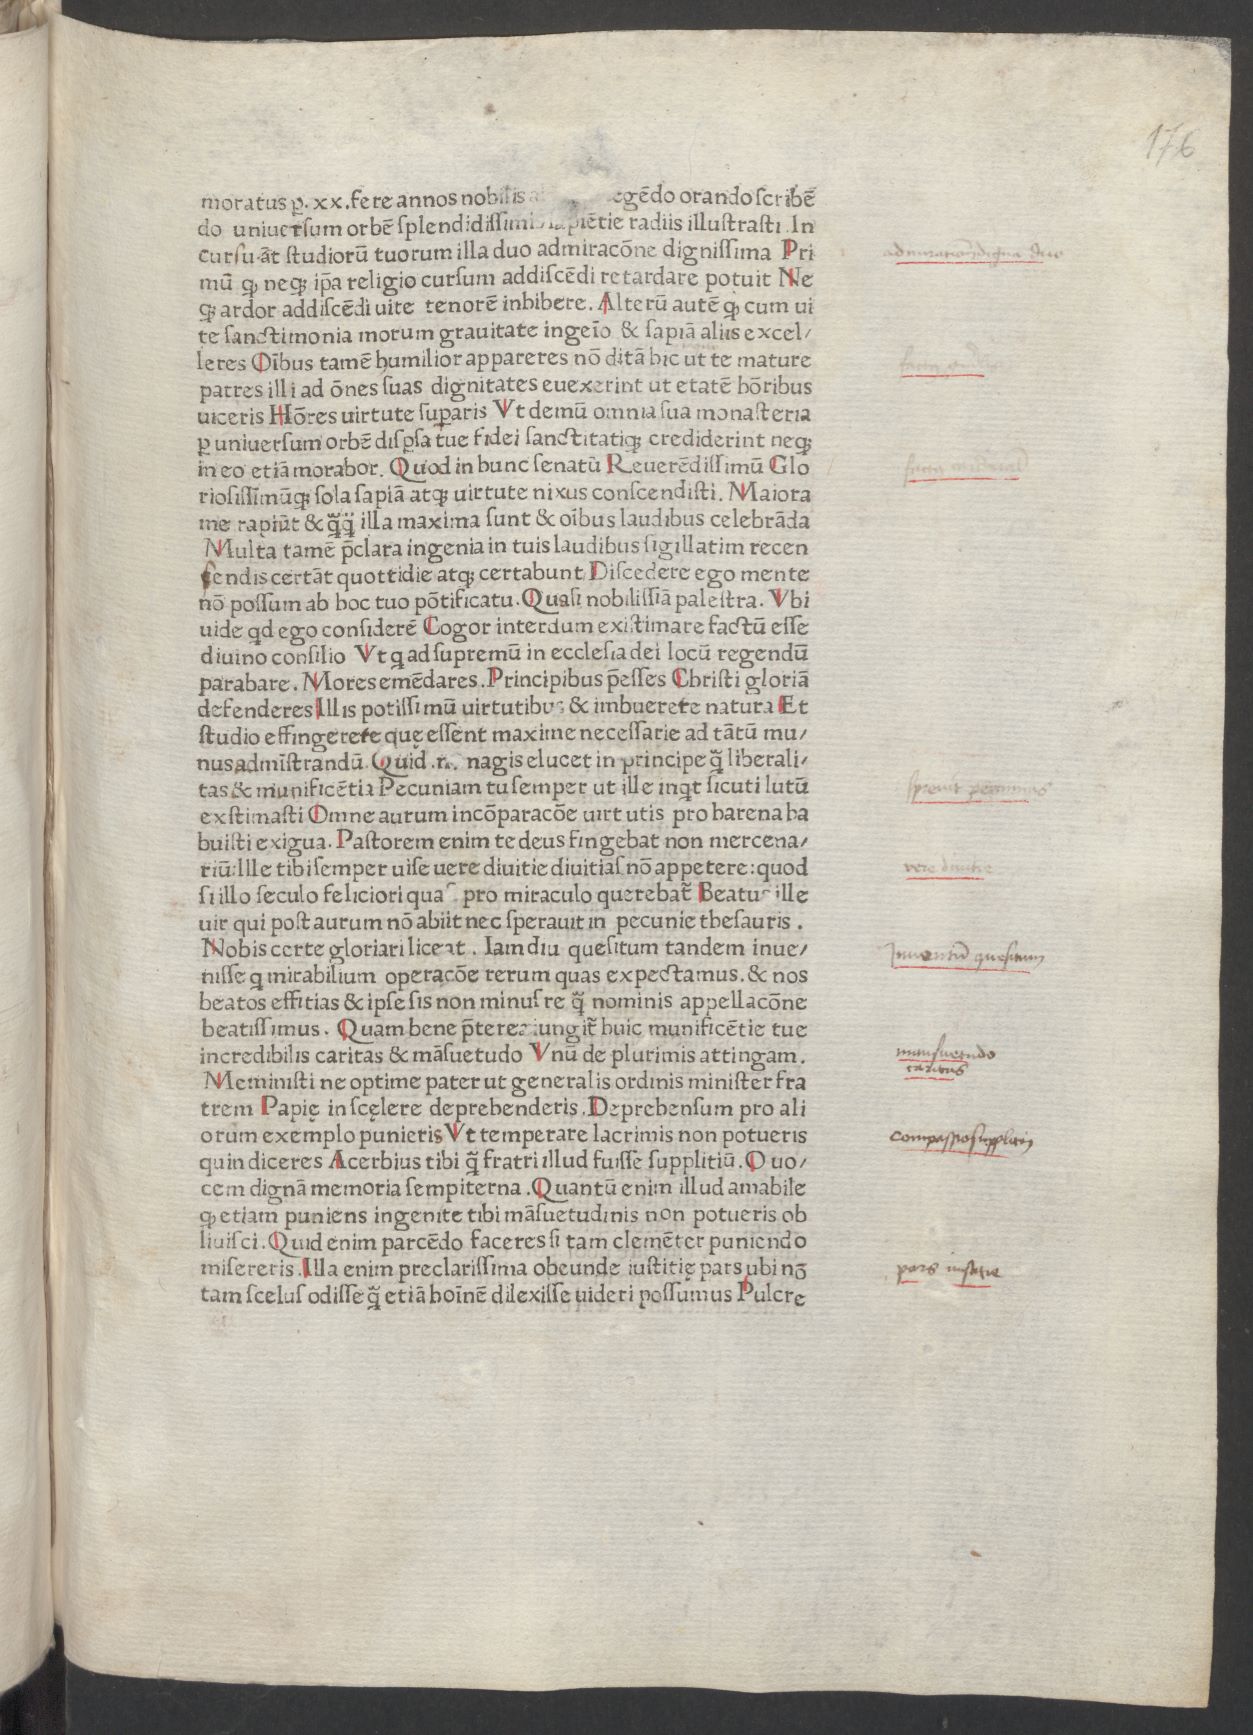 176
moratus ꝑ .xx. fere annos nobilis egēdo orando scribē
do uniuersum orbē splendidissimis sapiētie radiis illustrasti . In
cursu āt studiorū tuorum illa duo admiracōne dignissima Pri
admiratione digna duo
mū ꝙ neqꝫ ip̄a religio cursum addiscēdi retardare potuit Ne
ꝙ ardor addiscēdi uite tenorē inhibere . Alterū autē ꝙ cum ui
te sanctimonia morum grauitate ingeīo & sapiā aliis excel/
leres Oībus tamē humilior appareres nō ditā hic ut te mature
patres illi ad ōnes suas dignitates euexerint ut etatē hōribus
uiceris Hōres uirtute superaris Vt demū omnia sua monasteria
ꝑ uniuersum orbē disꝑsa tue fidei sanctitatiqꝫ crediderint neqꝫ
in eo etiā morabor . Quod in hunc senatū Reuerēdissimū Glo
riosissimūqꝫ sola sapiā atqꝫ uirtute nixus conscendisti . Maiora
me rapiūt & q̄q̄ illa maxima sunt & oībus laudibus celebrāda
Multa tamē p̄clara ingenia in tuis laudibus sigillatim recen
sendis certāt quottidie atqꝫ certabunt Discedere ego mente
nō possum ab hoc tuo pōtificatu . Quasi nobilissiā palestra . Vbi
uide qd ego considerē Cogor interdum existimare factū esse
diuino consilio Vt q ad supremū in ecclesia dei locū regendū
parabare . Mores emēdares . Principibus p̄esses Christi gloriā
defenderes Illis potissimū uirtutibus & imbuerete natura Et
studio effingerete quę essent maxime necessarie ad tātū mu/
nus admīstrandū . Quid .n. magis elucet in principe q̄ liberali/
tas & munificētia Pecuniam tu semper ut ille inqt sicuti lutū
spreuit pecunias
exstimasti Omne aurum incōparacōe uirtutis pro harena ha
buisti exigua . Pastorem enim te deus fingebat non mercena/
riū: Ille tibi semper uise uere diuitie diuitias nō appetere: quod
vere diuitie
si illo seculo feliciori quasi pro miraculo querebat̄ Beatus ille
uir qui post aurum nō abiit nec sperauit in pecunie thesauris .
Nobis certe gloriari liceat . Iam diu quesitum tandem inue/
Inuentū quesitum
nisse q mirabilium operacōe rerum quas expectamus . & nos
beatos effitias & ipse sis non minus re q̄ nominis appellacōne
beatissimus . Quam bene p̄terea iungit̄ huic munificētie tue
incredibilis caritas & māsuetudo Vnū de plurimis attingam .
mansuetudo
caritas
Meministi ne optime pater ut generalis ordinis minister fra
trem Papię in scęlere deprehenderis . Deprehensum pro ali
orum exemplo punieris Vt temperare lacrimis non potueris
compassio supplicii
quin diceres Acerbius tibi q̄ fratri illud fuisse supplitiū . O uo/
cem dignā memoria sempiterna . Quantū enim illud amabile
ꝙ etiam puniens ingenite tibi māsuetudinis non potueris ob
liuisci . Quid enim parcēdo faceres si tam clemēter puniendo
misereris . Illa enim preclarissima obeunde iustitię pars ubi nō
pars iusticie
tam scelus odisse q̄ etiā hoīnē dilexisse uideri possumus Pulcre